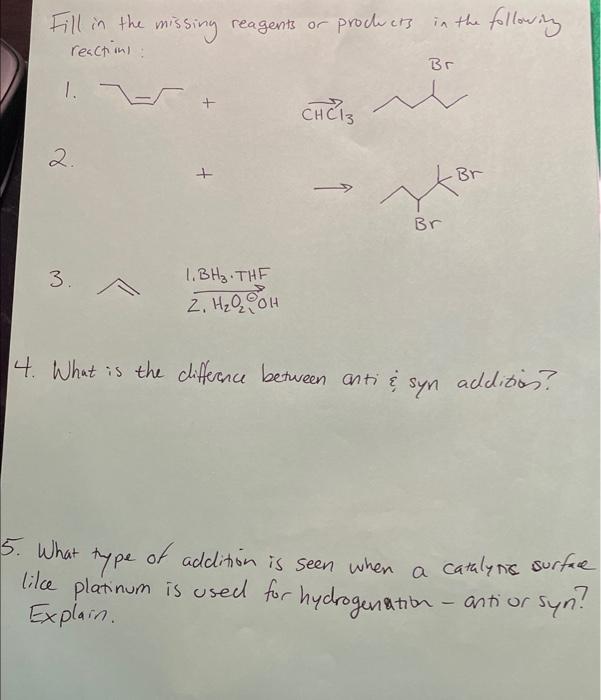 Fill in the missing reagents or products in the following
reactions:
1. + CHCl3 Br
2. + Br
Br
3. 1. BH3·THF
2. H2O2, ⊖OH
4. What is the difference between anti & syn addition?
5. What type of addition is seen when a catalytic surface
like platinum is used for hydrogenation - anti or syn?
Explain.